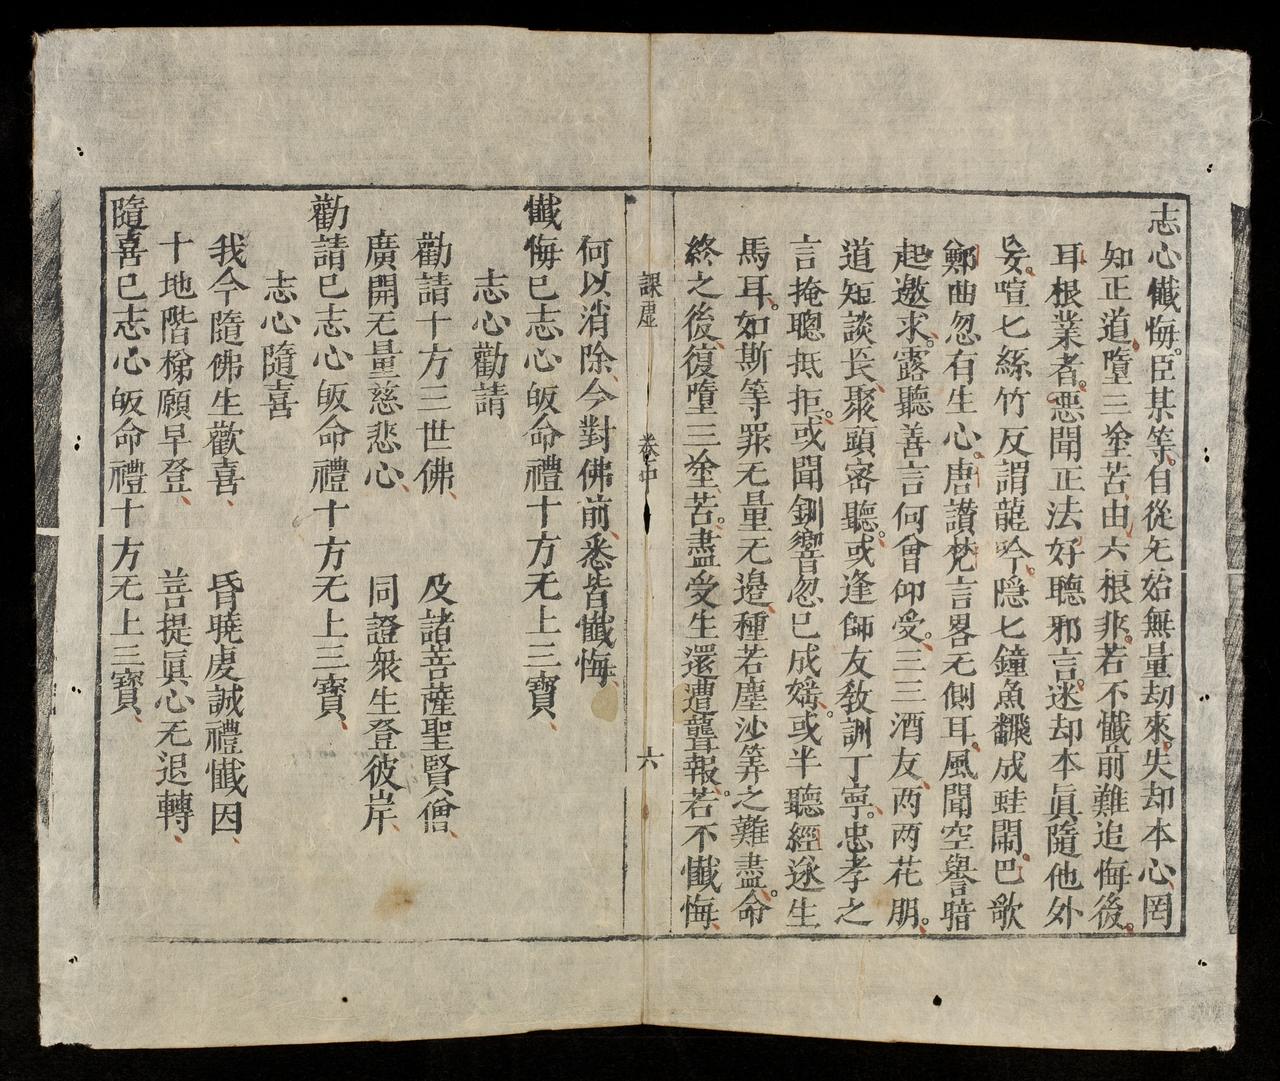 志心懺悔。臣某等。自從无始無量劫來。失却本心、罔
知正道。墮三塗苦。由六根非。若不懺前難追悔後。
耳根業者。惡聞正法好聽邪言。迷却本眞隨他外
妄。喧匕絲竹反謂龍吟。隱匕鐘魚飜成蛙鬧。巴歌
鄭曲忽有生心。唐讚梵言畧无側耳。風聞空譽言暗
起邀求。露聽善言何曾仰受。三三酒友、两两花朋。
道短談長、聚頭密聽。或逢師友教訓丁寧。忠孝之
言掩聰抵拒。或聞釧響忽已成婬。或半聽經遂生
馬耳。如斯等罪无量无邊、種若塵沙筭之難盡。命
終之後復墮三塗苦。盡受生還遭聾報。若不懺悔、
課虛 卷中 六
何以消除、今對佛前悉皆懺悔、
懺悔已志心皈命禮十方无上三寶、
志心勸請
勸請十方三世佛、 及諸菩薩聖賢僧、
廣開无量慈悲心、 同證衆生登彼岸、
勸請已志心皈命禮十方无上三寶、
志心隨喜
我今隨佛生歡喜、 昏曉虔誠禮懺因、
十地階梯願早登、 菩提眞心无退轉、
隨喜已志心皈命禮十方无上三寶、